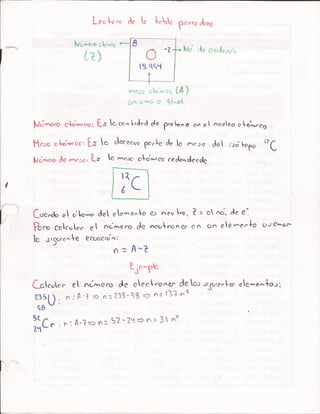 Lectura de la tabla periodica
Número atómico
8
-2
No. de oxidación
(Z)
O
15.994
masa atómica (A)
en uma o g/mol
Número atómico: Es la cantidad de protones en el núcleo atómico
Masa atómica: Es la doceava parte de la masa del isótopo ¹²C
Número de masa: Es la masa atómica redondeada
12
C
6
Cuando el átomo del elemento es neutro, Z = al no. de e⁻
Para calcular el número de neutrones en un elemento usamos
la siguiente ecuación:
n = A-Z
Ejemplo
Calcular el número de electrones de los siguientes elementos:
235
U
98
: n = A-Z ⇒ n = 235-98 ⇒ n = 137 n°
52
Cr
24
: n = A-Z ⇒ n = 52-24 ⇒ n = 31 n°